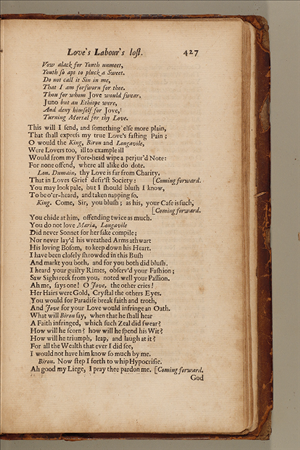 Love's Labour's lost. 427
Vow alack for Youth unmeet,
Youth so apt to pluck a Sweet.
Do not call it Sin in me,
That I am forsworn for thee.
Thou for whom Jove would swear,
Juno but an Ethiope were,
And deny himself for Jove,
Turning Mortal for thy Love.
This will I send, and something else more plain,
That shall express my true Love's fasting Pain;
O would the King, Biron and Longavile,
Were Lovers too, ill to example ill
Would from my Fore-head wipe a perjur'd Note:
For none offend, where all alike do dote.
Lon. Dumain, thy Love is far from Charity,
That in Loves Grief desir'st Society: [Coming forward.
You may look pale, but I should blush I know,
To be o'er-heard, and taken napping so.
King. Come, Sir, you blush; as his, your Case is such,
[Coming forward.
You chide at him, offending twice as much.
You do not love Maria, Longavile
Did never Sonnet for her sake compile;
Nor never lay'd his wreathed Arms athwart
His loving Bosom, to keep down his Heart.
I have been closely shrowded in this Bush
And markt you both, and for you both did blush.
I heard your guilty Rimes, observ'd your Fashion;
Saw Sighs reek from you, noted well your Passion.
Ah me, says one! O Jove, the other cries!
Her Hairs were Gold, Crystal the others Eyes.
You would for Paradise break faith and troth,
And Jove for your Love would infringe an Oath.
What will Biron say, when that he shall hear
A Faith infringed, which such Zeal did swear?
How will he scorn? how will he spend his Wit?
How will he triumph, leap, and laugh at it?
For all the Wealth that ever I did see,
I would not have him know so much by me.
Biron. Now step I forth to whip Hypocrisie.
Ah good my Liege, I pray thee pardon me. [Coming forward.
God